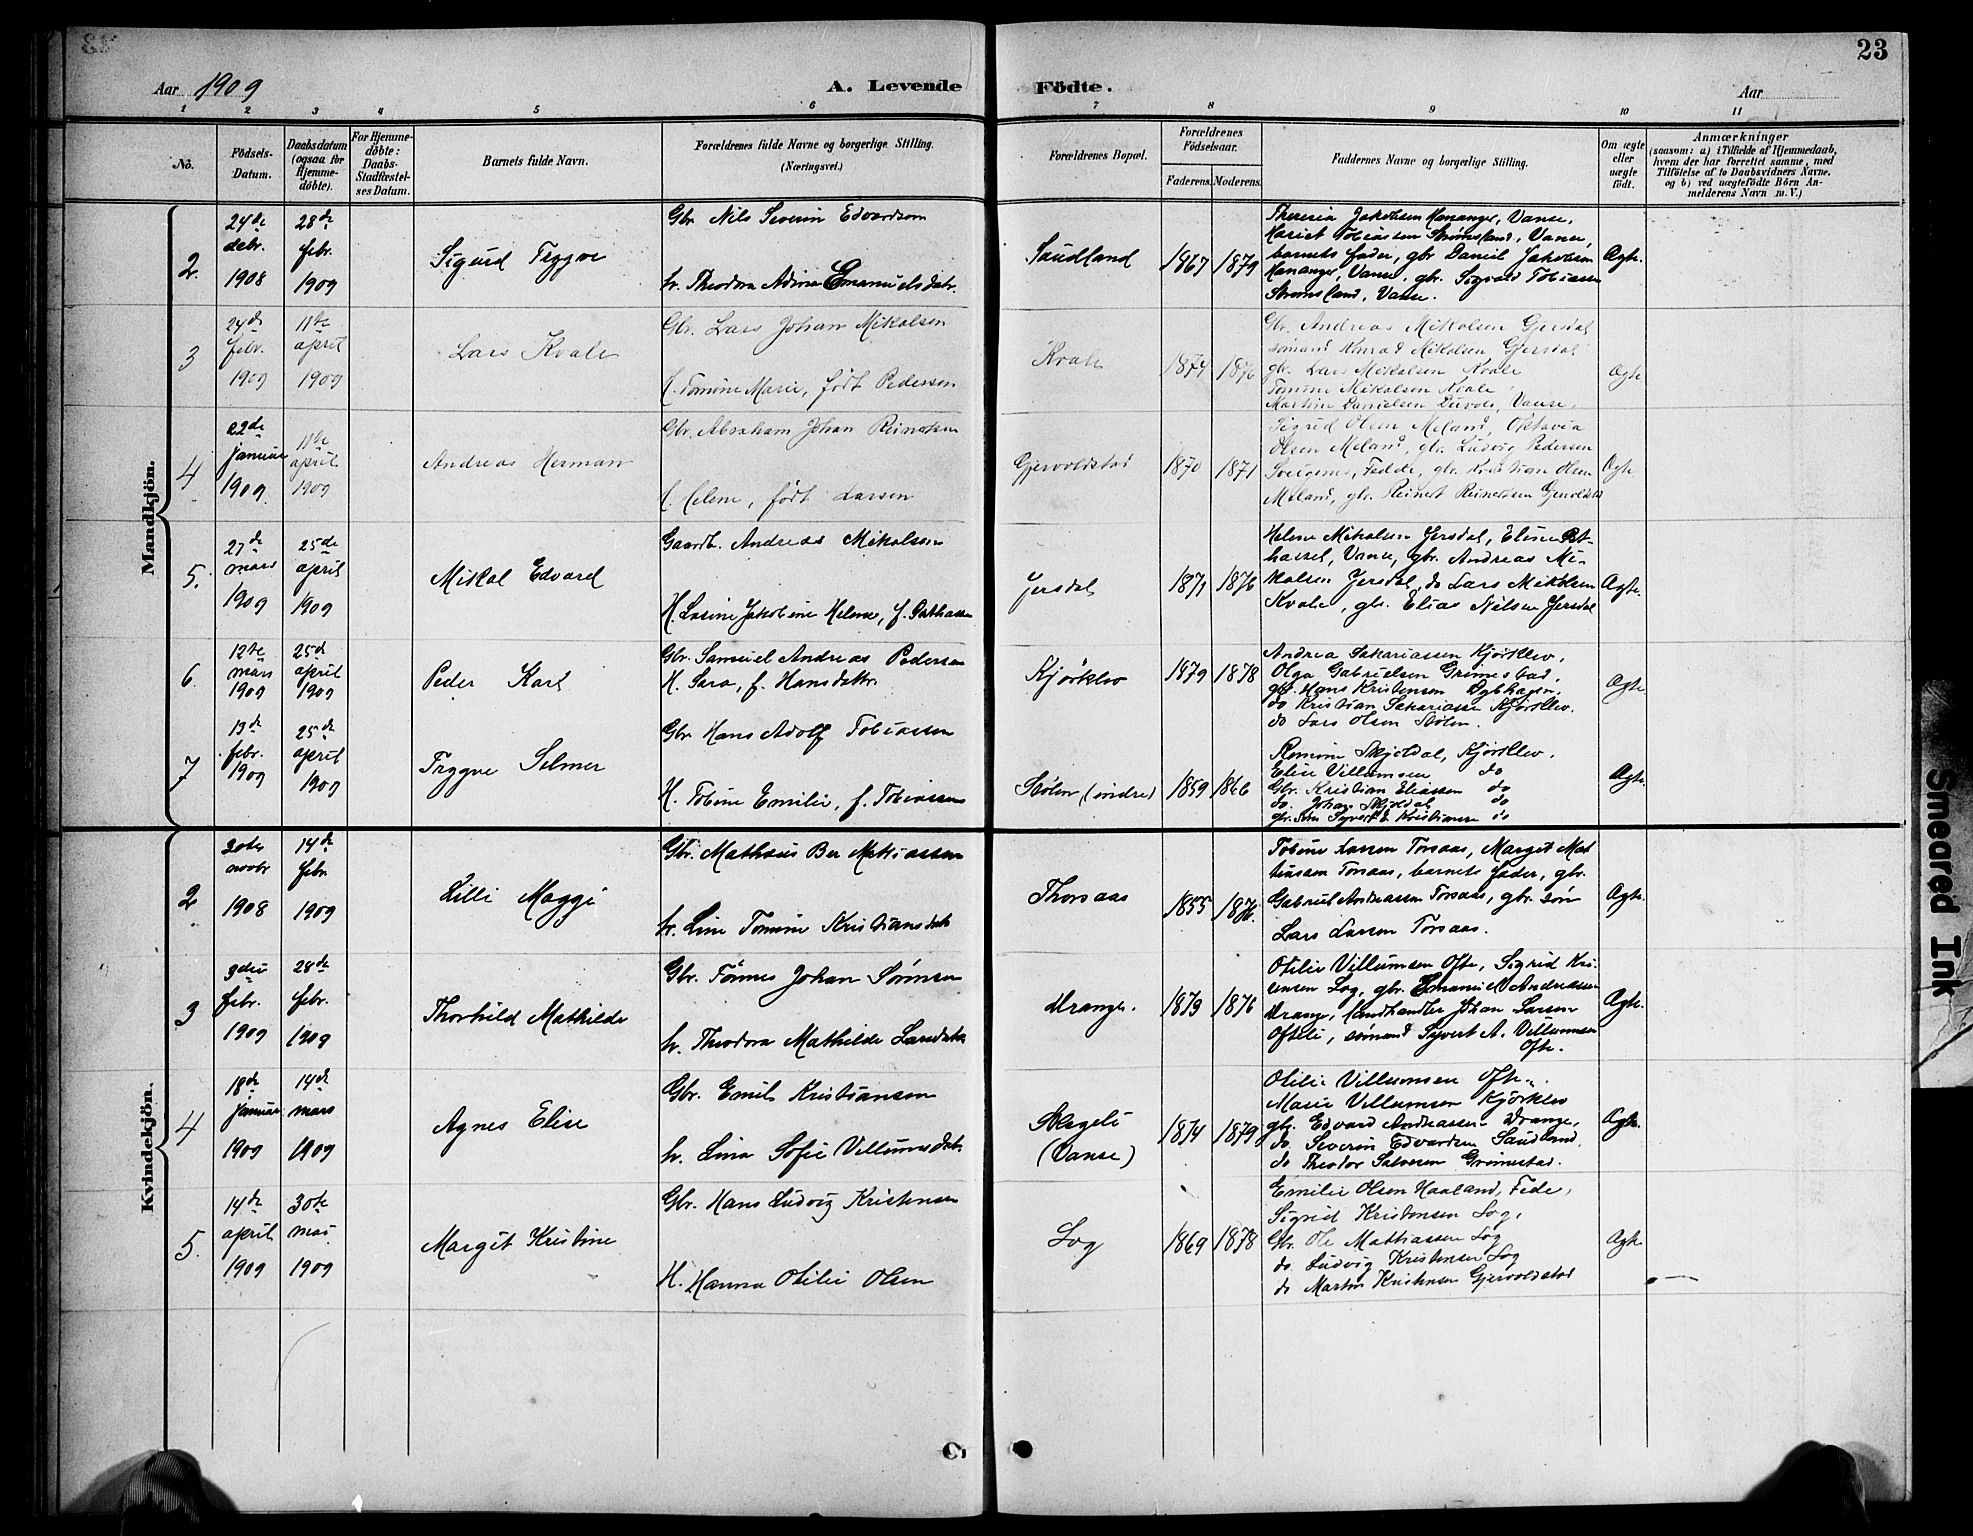 23
Aar 1909
A. Levende Födte.
Aar
1 2 3 4 5 6 7 8 9 10 11
No.
Födsels-Datum.
Daabsdatum (ogsaa for Hjemme-døbte).
For Hjemme-døbte: Daabs-Stadfæstel-ses Datum.
Barnets fulde Navn.
Forældrenes fulde Navne og borgerlige Stilling. (Næringsvei.)
Forældrenes Bopæl.
Forældrenes Fødselsaar.
Faderens. Moderens.
Faddernes Navne og borgerlige Stilling.
Om ægte eller uægte født.
Anmærkninger
(saasom: a) i Tilfælde af Hjemmedaab, hvem der har forrettet samme, med Tilföielse af to Daabsvidners Navne, og b) ved uægtefödte Börn An-melderens Navn m. V.)
Mandkjön.
2.
24de debr. 1908
28de febr. 1909
Sigurd Trygve
Gbr. Nils Severin Edvardsen
h. Theodora Adina Emanuelsdatr.
Saudland
1867 1879
Theresia Jakobsen Hananger, Vanse,
Hariet Tobiassen Strømsland, Vanse,
barnets fader, gbr Daniel Jakobsen
Hananger, Vanse, gbr. Sigvald Tobiassen
Strømsland, Vanse.
Ægte.
3
24de febr. 1909
11te april 1909
Lars Kvale
Gbr. Lars Johan Mikalsen
H. Tomine Marie, født Pedersen
Kvale
1874 1876
Gbr. Andreas Mikalsen Gjersdal
sømand Konrad Mikalsen Gjersdal
gbr. Lars Mikalsen Kvale
Tomine Mikalsen Kvale,
Martine Danielsen Vanse.
Ægte
4
22de januar 1909.
11te april 1909
Andreas Herman
Gbr. Abraham Johan Reinertsen
H. Helene, født Larsen
Gjervoldstad
1870 1871
Sigrid Olsen Meland, Oktavia
Olsen Meland, gbr. Ludvig Pedersen
Fedde, gbr. Kristian Olsen
Meland, gbr. Reinert Reinertsen Gjervoldstad
Ægte
5.
27de mars 1909
25de april 1909
Mikal Edvard
Gaardbr. Andreas Mikalsen
H. Lasine Jakobine Helene, f. Osthassel
Jersdal
1871 1876
Helene Mikalsen Jersdal, Eline Øst-
hassel, Vanse, gbr. Andreas Mi-
kalsen Jersdal, do Lars Mikalsen
Kvale, gbr. Elias Nilsen Jersdal
Ægte.
6.
12te mars 1909
25de april 1909
Peder Karl
Gbr. Samuel Andreas Pedersen
H. Sara, f. Hansdatter
Kjørklev
1879 1878
Andrea Sakariassen Kjørklev,
Olga Gabrielsen Grimestad,
gbr. Hans Kristensen Dybhagen,
do Kristian Sakariassen Kjørklev.
do Lars Olsen Stølen.
Ægte
7
13de febr. 1909
25de april 1909
Trygve Selmer
Gbr. Hans Adolf Tobiassen
H. Tobine Emilie, f. Tobiassen
Stølen (indre)
1859 1866
Skjoldal, Kjørklev.
Elise Villumsen do
Gbr. Kristian Eliassen do
do. Johan Skjoldal do
gbr. søn Syvert E. Kristiansen do
Ægte.
Kvindekjön.
2
20de novbr 1908
14de febr. 1909
Lilli Maggi
Gbr. Mathæus Ber Mathiassen
h. Line Tomine Kristiansdatr
Thorsaas
1855 1876.
Tobine Larsen Torsaas, Margit Mat
tæussen Torsaas, barnets fader, gbr.
Gabriel Andreassen Torsaas, gbr. søn
Lars Larsen Torsaas.
Ægte.
3
3die febr. 1909
28de febr. 1909
Thorhild Mathilde
Gbr. Tønnes Johan Sørensen
h. Theodora Mathilde Larsdatr.
Drange.
1873 1876
Otilie Villumsen Ofte, Sigrid Kri-
stensen Log, gbr. Emanuel Andreassen
Drange, landhandler Johan Larsen
Oftelie, sømand Syvert A. Villumsen
Ofte.
Ægte.
4
18de januar 1909
14de mars 1909
Agnes Elise
Gbr. Emil Kristiansen
h. Lina Sofie Villumsdatr.
Skegeli (Vanse)
1874 1879
Otilie Villumsen Ofte.
Marie Villumsen Kjørklev
gbr. Edvard Andreassen Drange,
do Severin Edvardsen Saudland,
do Theodor Salvesen Grimestad.
Ægte.
5.
14de april 1909
30te mai 1909
Margit Kristine
Gbr. Hans Ludvig Kristensen
H. Hanna Otilie Olsen
Log
1869 1878
Emilie Olsen Haaland, Fede,
Sigrid Kristensen Log,
Gbr. Ole Mathiassen Log
do Ludvig Kristensen Log
do Martin Kristensen Gjervoldstad
Ægte
Smeared Ink